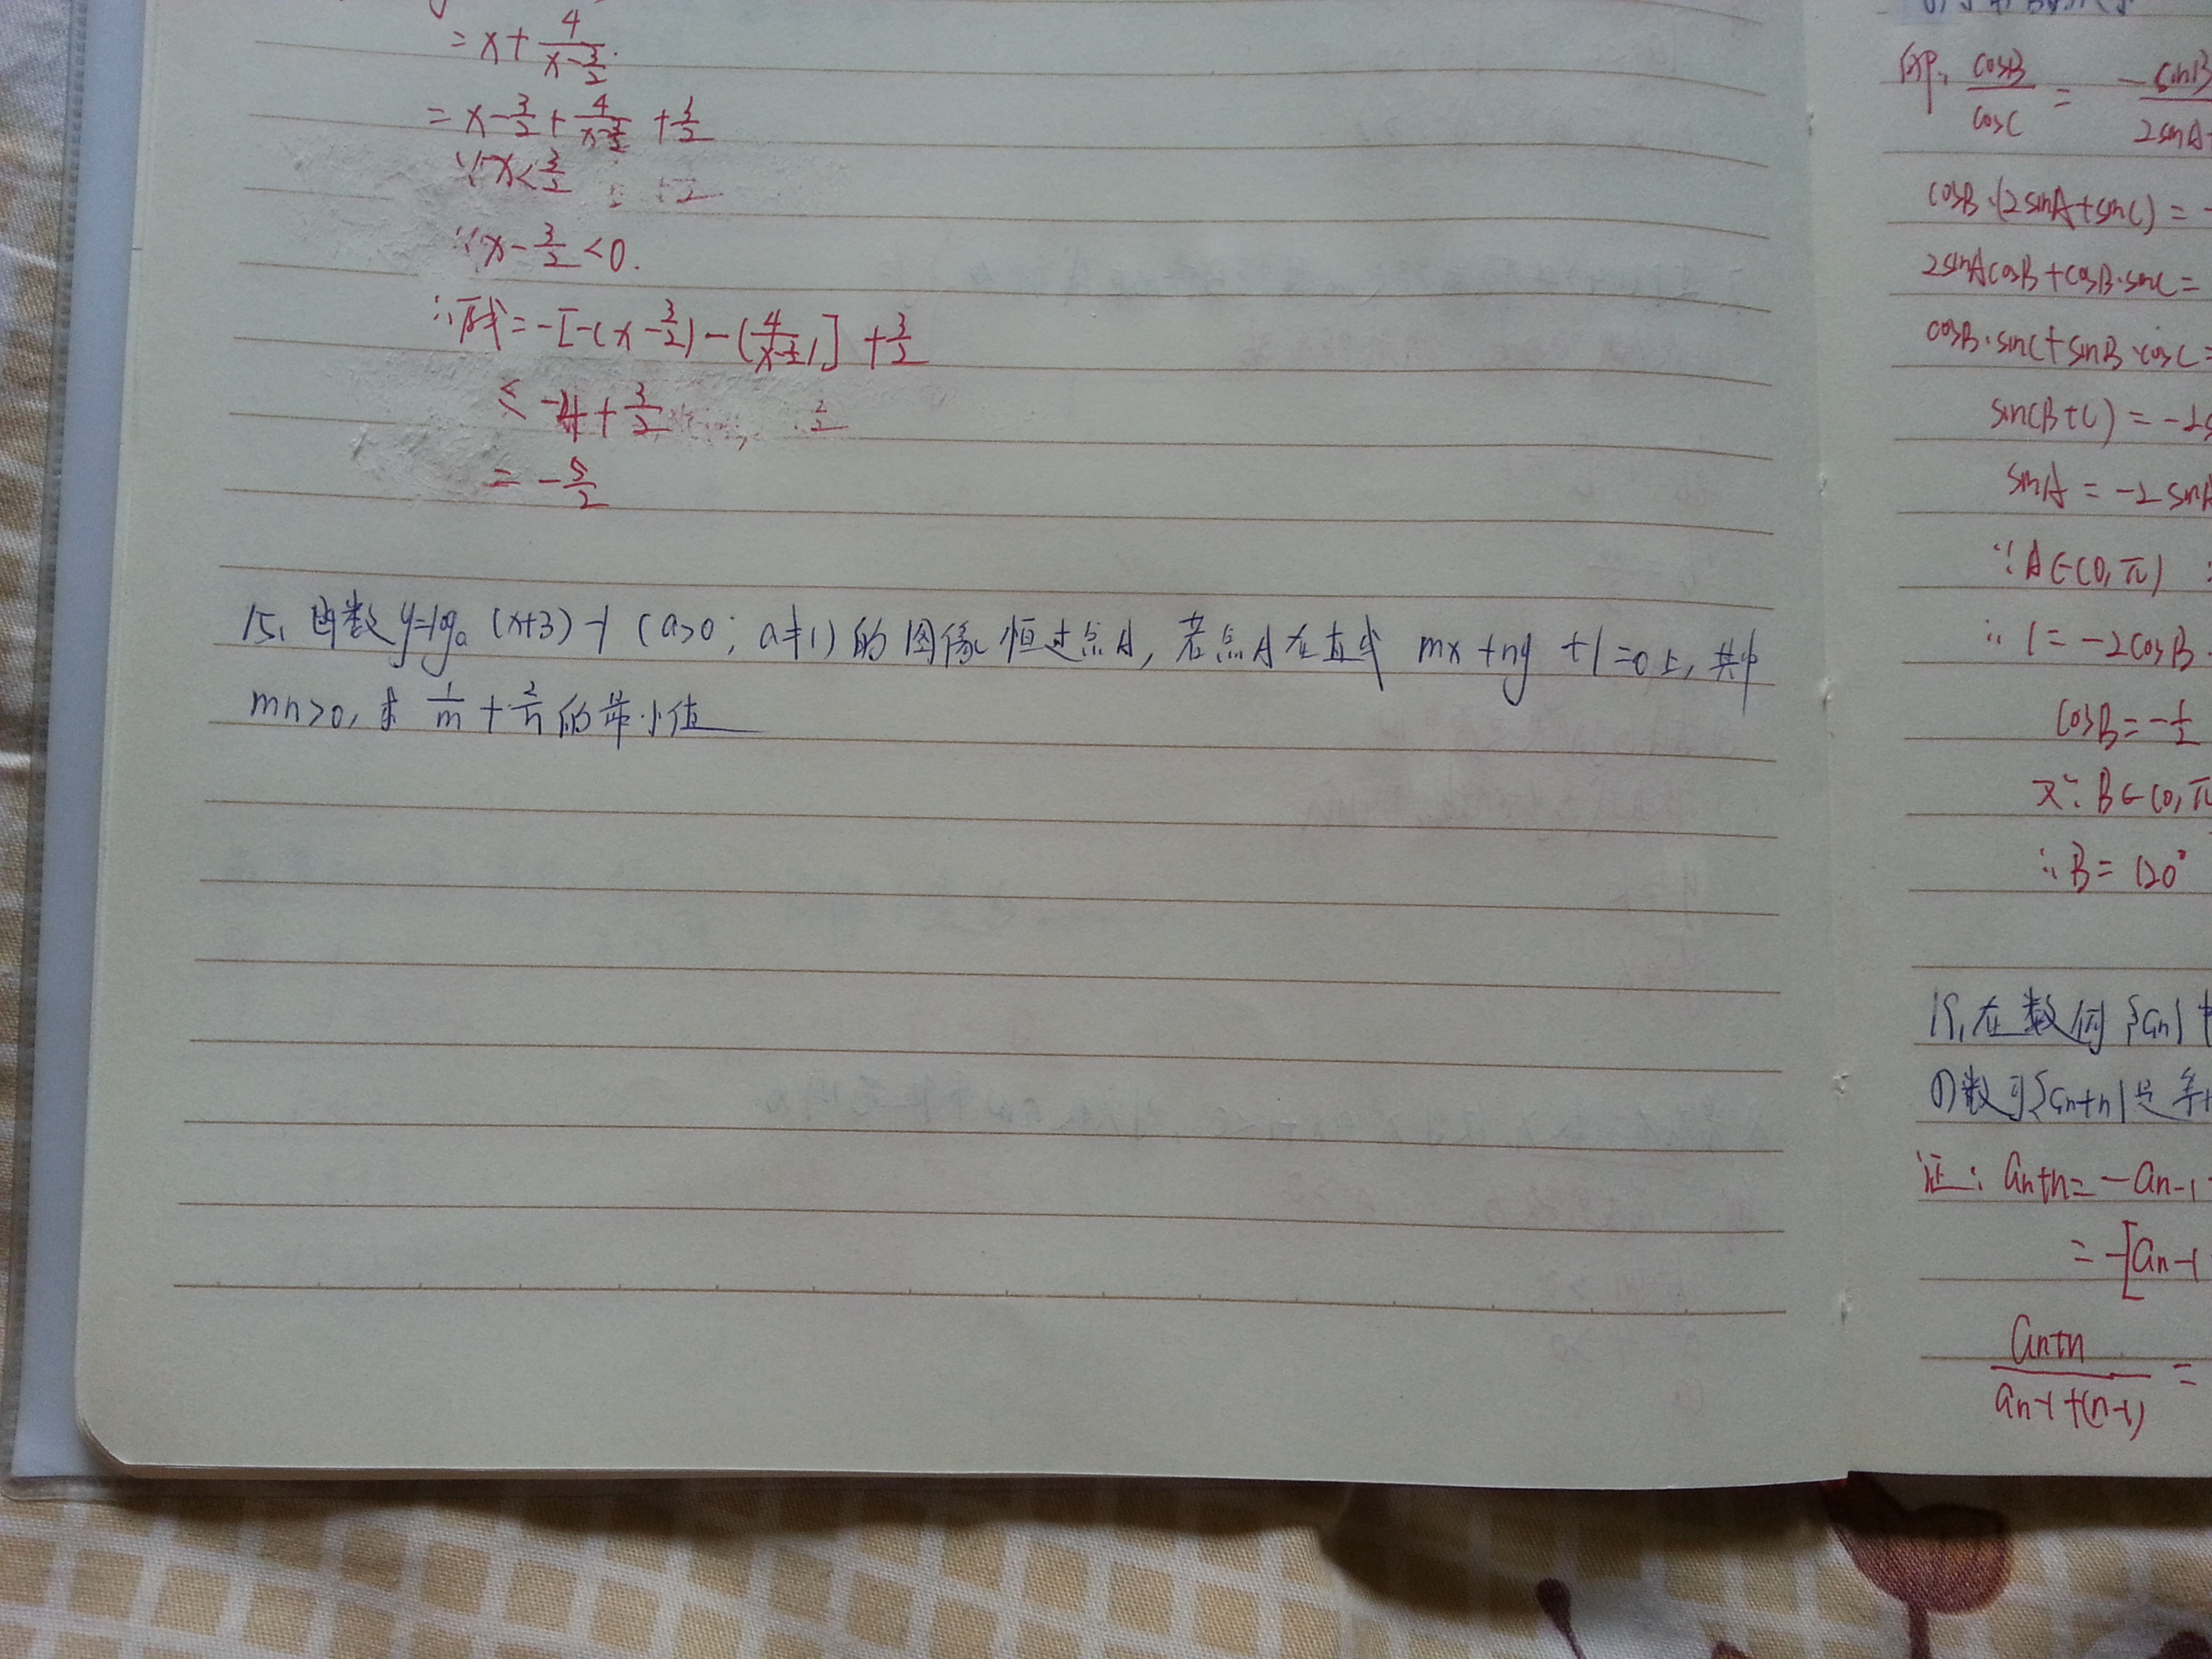 = x + 4/(x - 3/2).
= x - 3/2 + 4/(x - 3/2) + 3/2
∵ x < 3/2
∵ x - 3/2 < 0.
∴ 原式 = -[-(x - 3/2) - (4/(x - 3/2))] + 3/2
≤ -4 + 3/2
= -5/2
15、函数 y=log_a (x+3) -1 (a>0; a≠1) 的图像恒过点A, 若点A在直线 mx + ny + 1 = 0上, 其中
mn>0, 求 1/m + 2/n 的最小值
即、cosB/cosC = - sinB/2sinA+
cosB·(2sinA+sinC) = -
2sinAcosB + cosB·sinC =
cosB·sinC + sinB·cosC =
sin(B+C) = -2s
sinA = -2sinA
∵ A∈(0, π)
∴ 1 = -2cosB
cosB = -1/2
又∵ B∈(0, π
∴ B = 120°
19、在数列{an}中
①数列{an+n}是等
证: an+n = -an-1
= -[an-1
an+n / an-1+(n-1) =